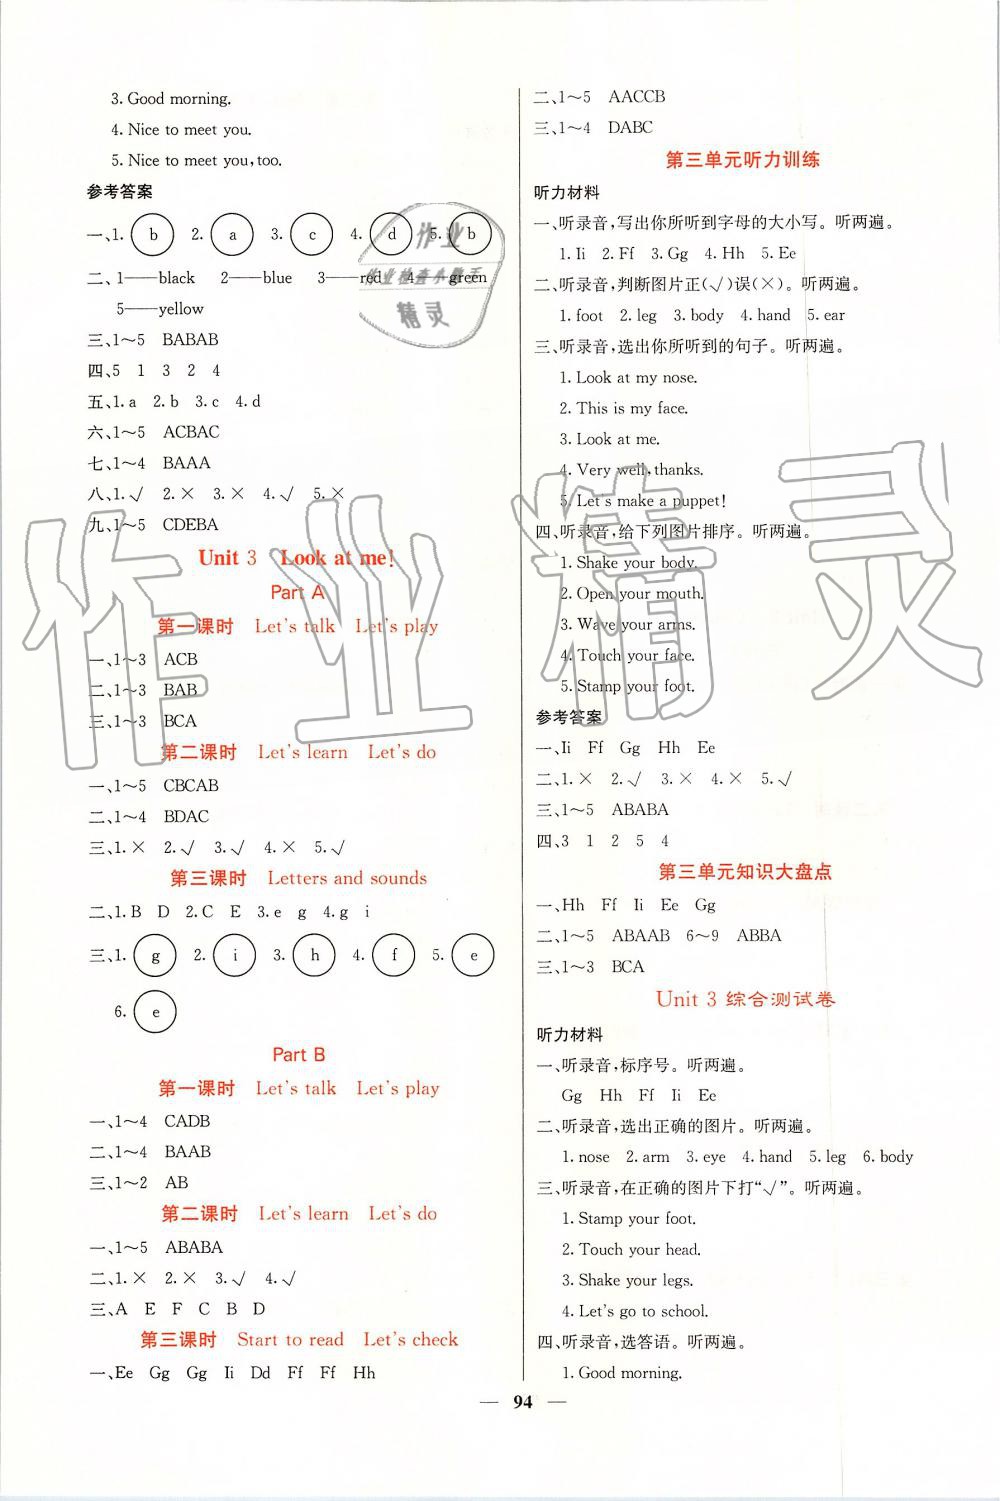 3. Good morning.
4. Nice to meet you.
5. Nice to meet you, too.
参考答案
一、1. b 2. a 3. c 4. d 5. b
二、1——black 2——blue 3——red 4——green
5——yellow
三、1～5 BABAB
四、5 1 3 2 4
五、1. a 2. b 3. c 4. d
六、1～5 ACBAC
七、1～4 BAAA
八、1. √ 2. × 3. × 4. √ 5. ×
九、1～5 CDEBA
Unit 3 Look at me!
Part A
第一课时 Let's talk Let's play
一、1～3 ACB
二、1～3 BAB
三、1～3 BCA
第二课时 Let's learn Let's do
一、1～5 CBCAB
二、1～4 BDAC
三、1. × 2. √ 3. √ 4. × 5. √
第三课时 Letters and sounds
二、1. B D 2. C E 3. e g 4. g i
三、1. g 2. i 3. h 4. f 5. e
6. e
Part B
第一课时 Let's talk Let's play
一、1～4 CADB
二、1～4 BAAB
三、1～2 AB
第二课时 Let's learn Let's do
一、1～5 ABABA
二、1. × 2. × 3. √ 4. √
三、A E F C B D
第三课时 Start to read Let's check
一、Ee Gg Gg Ii Dd Ff Ff Hh
二、1～5 AACCB
三、1～4 DABC
第三单元听力训练
听力材料
一、听录音,写出你所听到字母的大小写。听两遍。
1. Ii 2. Ff 3. Gg 4. Hh 5. Ee
二、听录音,判断图片正(√)误(×)。听两遍。
1. foot 2. leg 3. body 4. hand 5. ear
三、听录音,选出你所听到的句子。听两遍。
1. Look at my nose.
2. This is my face.
3. Look at me.
4. Very well, thanks.
5. Let's make a puppet!
四、听录音,给下列图片排序。听两遍。
1. Shake your body.
2. Open your mouth.
3. Wave your arms.
4. Touch your face.
5. Stamp your foot.
参考答案
一、Ii Ff Gg Hh Ee
二、1. × 2. √ 3. × 4. × 5. √
三、1～5 ABABA
四、3 1 2 5 4
第三单元知识大盘点
一、Hh Ff Ii Ee Gg
二、1～5 ABAAB 6～9 ABBA
三、1～3 BCA
Unit 3 综合测试卷
听力材料
一、听录音,标序号。听两遍。
Gg Hh Ff Ii Ee
二、听录音,选出正确的图片。听两遍。
1. nose 2. arm 3. eye 4. hand 5. leg 6. body
三、听录音,在正确的图片下打“√”。听两遍。
1. Stamp your foot.
2. Touch your head.
3. Shake your legs.
4. Let's go to school.
四、听录音,选答语。听两遍。
1. Good morning.
— 94 —
作业精灵
作业
作业检查小助手
精灵